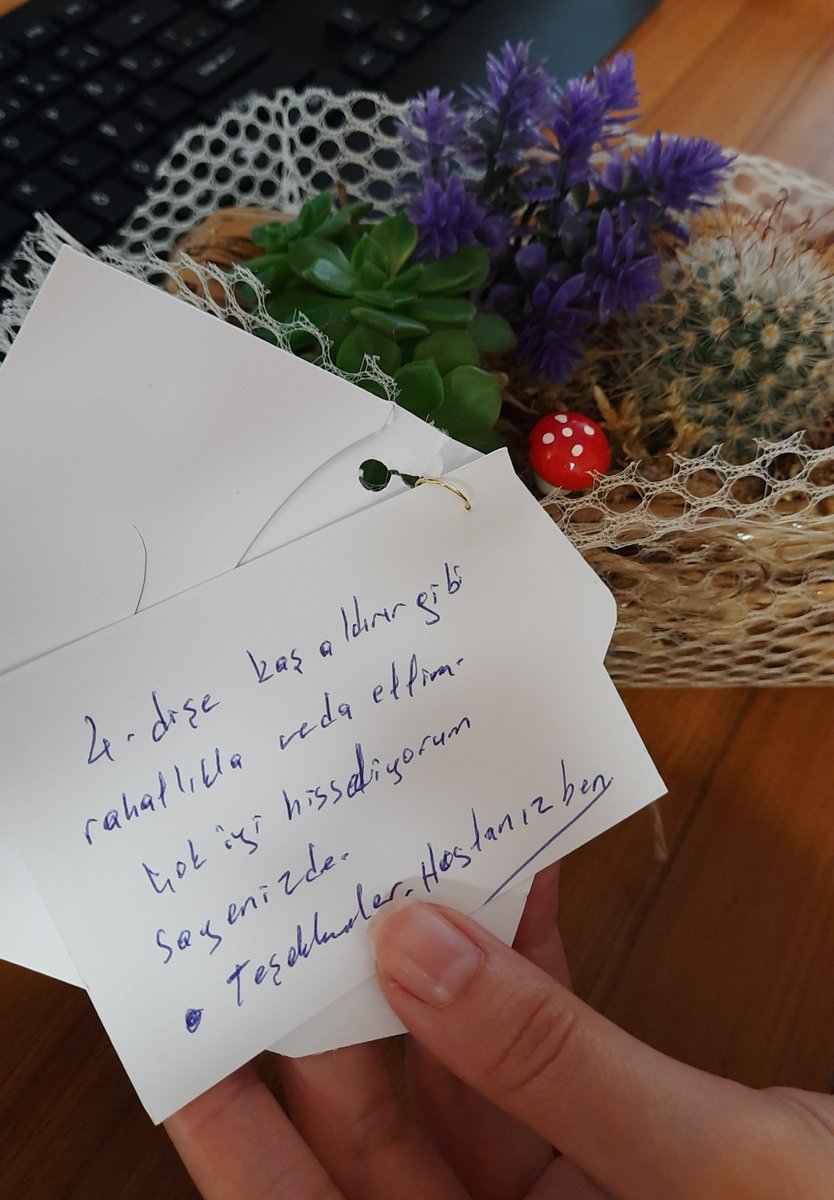 4. dişe kaş aldırır gibi
rahatlıkla veda ettim.
Çok iyi hissediyorum
sayenizde.
• Teşekkürler. Hastanız ben